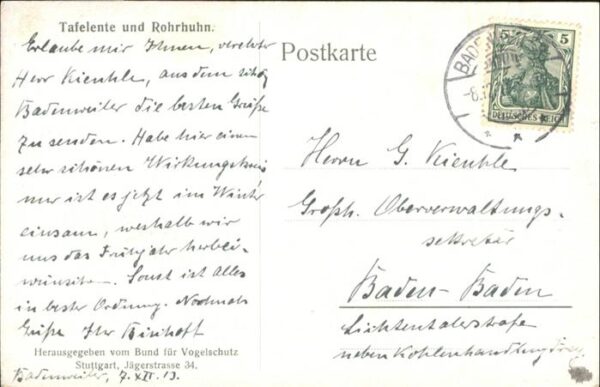 Tafelente und Rohrhuhn.
Erlaube mir Ihnen, verehrter
Herr Kienhle, aus dem schön
Badenweiler die besten Grüße
zu senden. Habe hier einen
sehr schönen Wirkungskreis
nur ist es jetzt im Winter
einsam, weshalb wir
uns das Frühjahr herbei-
wünschen. Sonst ist Alles
in bester Ordnung. Nochmals
Grüße Ihr
Herausgegeben vom Bund für Vogelschutz
Stuttgart, Jägerstrasse 34.
Badenweiler, 7.XII.13.
Postkarte
5 5
DEUTSCHES REICH
BADENW
-8.12
Herrn G. Kienhle
Großh. Oberverwaltungs-
sekretär
Baden-Baden
Lichtentalerstraße
neben Kohlenhandlung